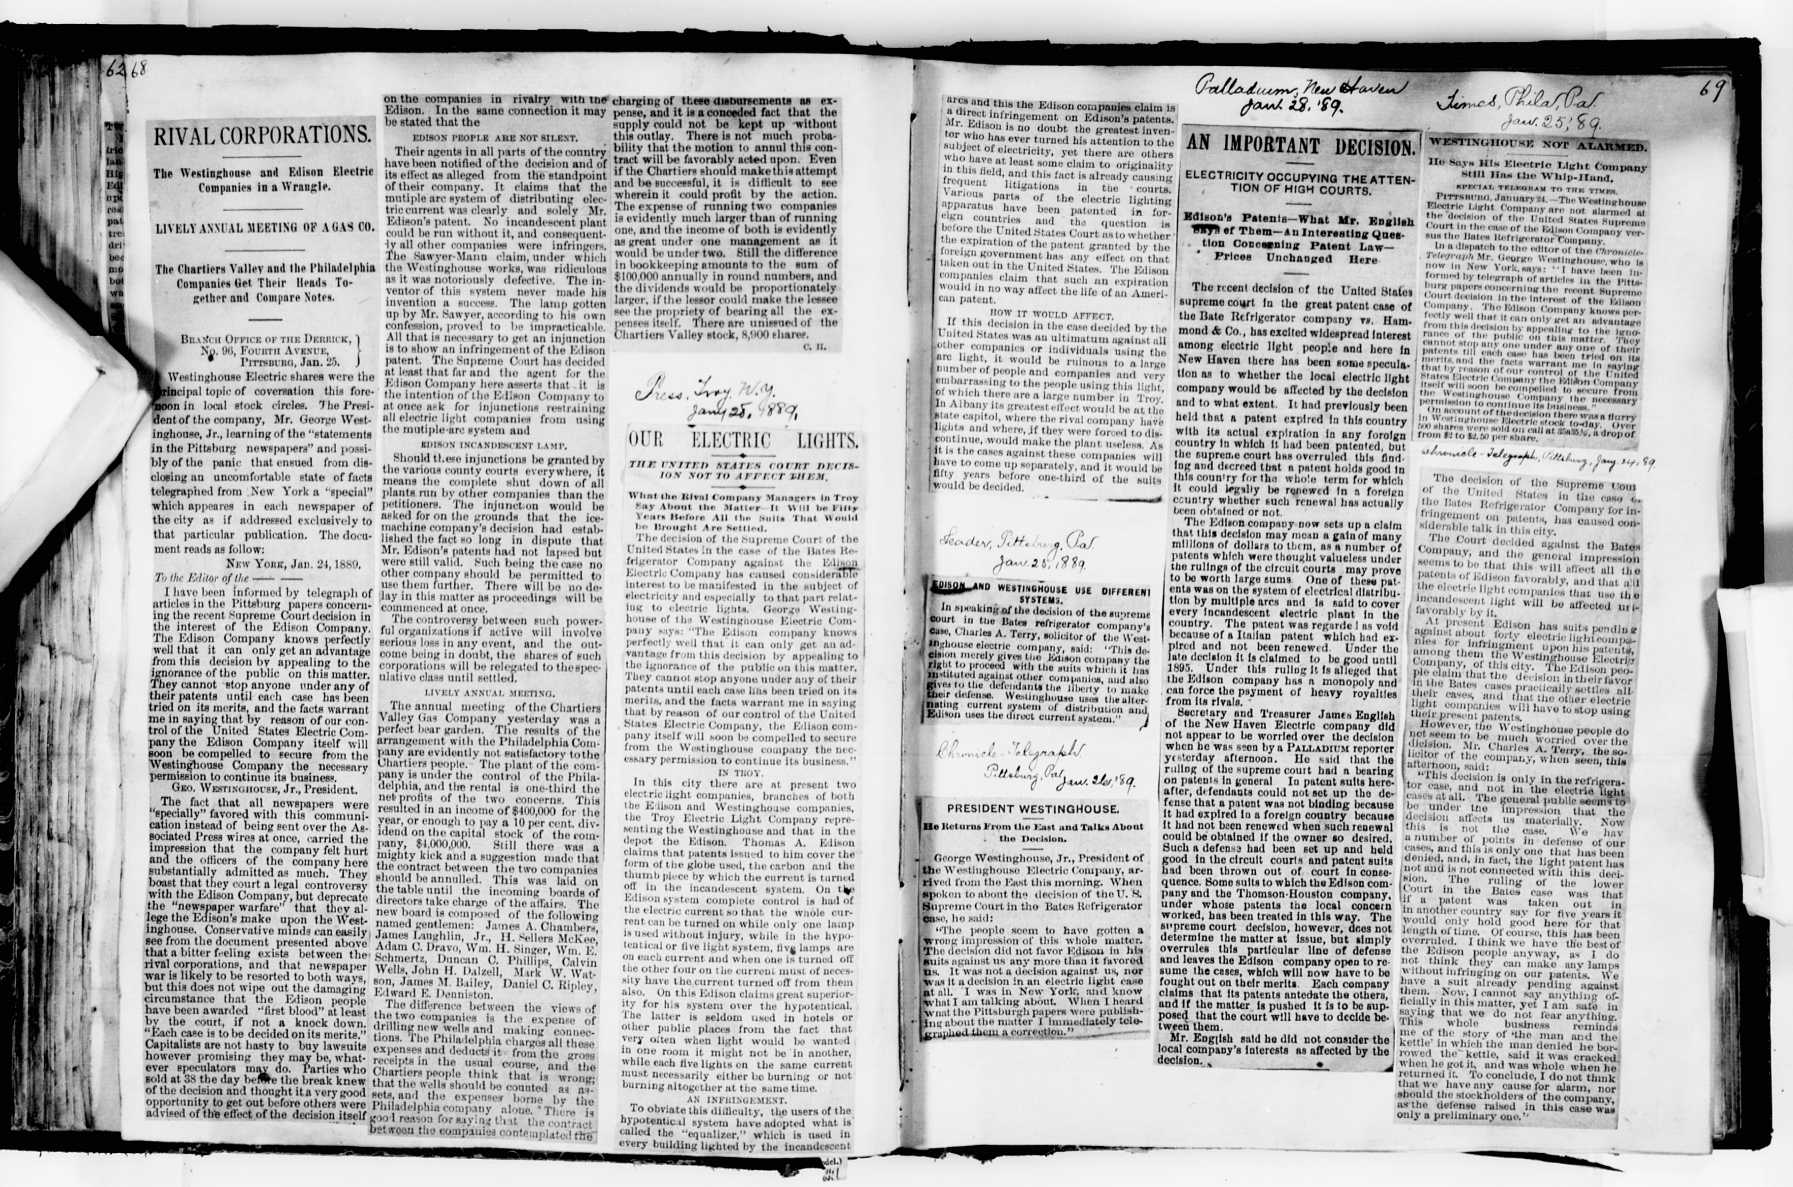 62
68
RIVAL CORPORATIONS.
The Westinghouse and Edison Electric
Companies in a Wrangle.
LIVELY ANNUAL MEETING OF A GAS CO.
The Chartiers Valley and the Philadelphia
Companies Get Their Heads To-
gether and Compare Notes.
BRANCH OFFICE OF THE DERRICK,
No. 96, FOURTH AVENUE,
PITTSBURG, Jan. 25.
Westinghouse Electric shares were the
principal topic of coversation this fore-
noon in local stock circles. The Presi-
dent of the company, Mr. George West-
inghouse, Jr., learning of the "statements
in the Pittsburg newspapers" and possi-
bly of the panic that ensued from dis-
closing an uncomfortable state of facts
telegraphed from New York a "special"
which appeares in each newspaper of
the city as if addressed exclusively to
that particular publication. The docu-
ment reads as follow:
NEW YORK, Jan. 24, 1889.
To the Editor of the
I have been informed by telegraph of
articles in the Pittsburg papers concern-
ing the recent Supreme Court decision in
the interest of the Edison Company.
The Edison Company knows perfectly
well that it can only get an advantage
from this decision by appealing to the
ignorance of the public on this matter.
They cannot stop anyone under any of
their patents until each case has been
tried on its merits, and the facts warrant
me in saying that by reason of our con-
trol of the United States Electric Com-
pany the Edison Company itself will
soon be compelled to secure from the
Westinghouse Company the necessary
permission to continue its business.
GEO. WESTINGHOUSE, Jr., President.
The fact that all newspapers were
"specially" favored with this communi-
cation instead of being sent over the As-
sociated Press wires at once, carried the
impression that the company felt hurt
and the officers of the company here
substantially admitted as much. They
boast that they court a legal controversy
with the Edison Company, but deprecate
the "newspaper warfare" that they al-
lege the Edison's make upon the West-
inghouse. Conservative minds can easily
see from the document presented above
that a bitter feeling exists between the
rival corporations, and that newspaper
war is likely to be resorted to both ways,
but this does not wipe out the damaging
circumstance that the Edison people
have been awarded "first blood" at least
by the court, if not a knock down.
"Each case is to be decided on its merits."
Capitalists are not hasty to buy lawsuits
however promising they may be, what-
ever speculators may do. Parties who
sold at 38 the day before the break knew
of the decision and thought it a very good
opportunity to get out before others were
advised of the effect of the decision itself
on the companies in rivalry with the
Edison. In the same connection it may
be stated that the
EDISON PEOPLE ARE NOT SILENT.
Their agents in all parts of the country
have been notified of the decision and of
its effect as alleged from the standpoint
of their company. It claims that the
mutiple arc system of distributing elec-
tric current was clearly and solely Mr.
Edison's patent. No incandescent plant
could be run without it, and consequent-
ly all other companies were infringers.
The Sawyer-Mann claim, under which
the Westinghouse works, was ridiculous
as it was notoriously defective. The in-
ventor of this system never made his
invention a success. The lamp gotten
up by Mr. Sawyer, according to his own
confession, proved to be impracticable.
All that is necessary to get an injunction
is to show an infringement of the Edison
patent. The Supreme Court has decided
at least that far and the agent for the
Edison Company here asserts that it is
the intention of the Edison Company to
at once ask for injunctions restraining
all electric light companies from using
the mutiple-arc system and
EDISON INCANDESCENT LAMP.
Should these injunctions be granted by
the various county courts everywhere, it
means the complete shut down of all
plants run by other companies than the
petitioners. The injunction would be
asked for on the grounds that the ice-
machine company's decision had estab-
lished the fact so long in dispute that
Mr. Edison's patents had not lapsed but
were still valid. Such being the case no
other company should be permitted to
use them further. There will be no de-
lay in this matter as proceedings will be
commenced at once.
The controversy between such power-
ful organizations if active will involve
serious loss in any event, and the out-
come being in doubt, the shares of such
corporations will be relegated to the spec-
ulative class until settled.
LIVELY ANNUAL MEETING.
The annual meeting of the Chartiers
Valley Gas Company yesterday was a
perfect bear garden. The results of the
arrangement with the Philadelphia Com-
pany are evidently not satisfactory to the
Chartiers people. The plant of the com-
pany is under the control of the Phila-
delphia, and the rental is one-third the
net profits of the two concerns. This
resulted in an income of $400,000 for the
year, or enough to pay a 10 per cent. div-
idend on the capital stock of the com-
pany, $4,000,000. Still there was a
mighty kick and a suggestion made that
the contract between the two companies
should be annulled. This was laid on
the table until the incoming boards of
directors take charge of the affairs. The
new board is composed of the following
named gentlemen: James A. Chambers,
James Laughlin, Jr., H. Sellers McKee,
Adam C. Dravo, Wm. H. Singer, Wm. E.
Schmertz, Duncan C. Phillips, Calvin
Wells, John H. Dalzell, Mark W. Wat-
son, James M. Bailey, Daniel C. Ripley,
Edward E. Denniston.
The difference between the views of
the two companies is the expense of
drilling new wells and making connec-
tions. The Philadelphia charges all these
expenses and deducts it from the gross
receipts in the usual course, and the
Chartiers people think that is wrong;
that the wells should be counted as as-
sets, and the expenses borne by the
Philadelphia company alone. There is
good reason for saying that the contract
between the companies contemplated the
charging of these disbursements as ex-
pense, and it is a conceded fact that the
supply could not be kept up without
this outlay. There is not much proba-
bility that the motion to annul this con-
tract will be favorably acted upon. Even
if the Chartiers should make this attempt
and be successful, it is difficult to see
wherein it could profit by the action.
The expense of running two companies
is evidently much larger than of running
one, and the income of both is evidently
as great under one management as it
would be under two. Still the difference
in bookkeeping amounts to the sum of
$100,000 annually in round numbers, and
the dividends would be proportionately
larger, if the lessor could make the lessee
see the propriety of bearing all the ex-
penses itself. There are unissued of the
Chartiers Valley stock, 8,900 shares.
C. H.
Press, Troy, N.Y.
Jany 25, 1889,
OUR ELECTRIC LIGHTS.
THE UNITED STATES COURT DECIS-
ION NOT TO AFFECT THEM.
What the Rival Company Managers in Troy
Say About the Matter—It Will be Fifty
Years Before All the Suits That Would
be Brought Are Settled.
The decision of the Supreme Court of the
United States in the case of the Bates Re-
frigerator Company against the Edison
Electric Company has caused considerable
interest to be manifested in the subject of
electricity and especially to that part relat-
ing to electric lights. George Westing-
house of the Westinghouse Electric Com-
pany says: "The Edison company knows
perfectly well that it can only get an ad-
vantage from this decision by appealing to
the ignorance of the public on this matter.
They cannot stop anyone under any of their
patents until each case has been tried on its
merits, and the facts warrant me in saying
that by reason of our control of the United
States Electric Company, the Edison com-
pany itself will soon be compelled to secure
from the Westinghouse company the nec-
essary permission to continue its business."
IN TROY.
In this city there are at present two
electric light companies, branches of both
the Edison and Westinghouse companies,
the Troy Electric Light Company repre-
senting the Westinghouse and that in the
depot the Edison. Thomas A. Edison
claims that patents issued to him cover the
form of the globe used, the carbon and the
thumb piece by which the current is turned
off in the incandescent system. On the
Edison system complete control is had of
the electric current so that the whole cur-
rent can be turned on while only one lamp
is used without injury, while in the hypo-
tentical or five light system, five lamps are
on each current and when one is turned off
the other four on the current must of neces-
sity have the current turned off from them
also. On this Edison claims great superior-
ity for his system over the hypotential.
The latter is seldom used in hotels or
other public places from the fact that
very often when light would be wanted
in one room it might not be in another,
while each five lights on the same current
must necessarily either be burning or not
burning altogether at the same time.
AN INFRINGEMENT.
To obviate this difficulty, the users of the
hypotentical system have adopted what is
called the "equalizer," which is used in
every building lighted by the incandescent
arcs and this the Edison companies claim is
a direct infringement on Edison's patents.
Mr. Edison is no doubt the greatest inven-
tor who has ever turned his attention to the
subject of electricity, yet there are others
who have at least some claim to originality
in this field, and this fact is already causing
frequent litigations in the courts.
Various parts of the electric lighting
apparatus have been patented in for-
eign countries and the question is
before the United States Court as to whether
the expiration of the patent granted by the
foreign government has any effect on that
taken out in the United States. The Edison
companies claim that such an expiration
would in no way affect the life of an Ameri-
can patent.
HOW IT WOULD AFFECT.
If this decision in the case decided by the
United States was an ultimatum against all
other companies or individuals using the
arc light, it would be ruinous to a large
number of people and companies and very
embarrassing to the people using this light,
of which there are a large number in Troy.
In Albany its greatest effect would be at the
state capitol, where the rival company have
lights and where, if they were forced to dis-
continue, would make the plant useless. As
it is the cases against these companies will
have to come up separately, and it would be
fifty years before one-third of the suits
would be decided.
Leader, Pittsburg, Pa.
Jan. 25, 1889.
EDISON AND WESTINGHOUSE USE DIFFERENT
SYSTEMS.
In speaking of the decision of the supreme
court in the Bates refrigerator company's
case, Charles A. Terry, solicitor of the West-
inghouse electric company, said: "This de-
cision merely gives the Edison company the
right to proceed with the suits which it has
instituted against other companies, and also
gives to the defendants the liberty to make
their defense. Westinghouse uses the alter-
nating current system of distribution and
Edison uses the direct current system."
Chronicle-Telegraph
Pittsburg, Pa.
Jan. 26, '89.
PRESIDENT WESTINGHOUSE.
He Returns From the East and Talks About
the Decision.
George Westinghouse, Jr., President of
the Westinghouse Electric Company, ar-
rived from the East this morning. When
spoken to about the decision of the U. S.
Supreme Court in the Bates Refrigerator
case, he said:
"The people seem to have gotten a
wrong impression of this whole matter.
The decision did not favor Edison in his
suits against us any more than it favored
us. It was not a decision against us, nor
was it a decision in an electric light case
at all. I was in New York, and know
what I am talking about. When I heard
what the Pittsburgh papers were publish-
ing about the matter I immediately tele-
graphed them a correction."
Palladium, New Haven
Jan. 28, '89.
AN IMPORTANT DECISION.
ELECTRICITY OCCUPYING THE ATTEN-
TION OF HIGH COURTS.
Edison's Patents—What Mr. English
Says of Them—An Interesting Ques-
tion Concerning Patent Law—
Prices Unchanged Here
The recent decision of the United States
supreme court in the great patent case of
the Bate Refrigerator company vs. Ham-
mond & Co., has excited widespread interest
among electric light people and here in
New Haven there has been some specula-
tion as to whether the local electric light
company would be affected by the decision
and to what extent. It had previously been
held that a patent expired in this country
with its actual expiration in any foreign
country in which it had been patented, but
the supreme court has overruled this find-
ing and decreed that a patent holds good in
this country for the whole term for which
it could legally be renewed in a foreign
country whether such renewal has actually
been obtained or not.
The Edison company now sets up a claim
that this decision may mean a gain of many
millions of dollars to them, as a number of
patents which were thought valueless under
the rulings of the circuit courts may prove
to be worth large sums. One of these pat-
ents was on the system of electrical distribu-
tion by multiple arcs and is said to cover
every incandescent electric plant in the
country. The patent was regarded as void
because of a Italian patent which had ex-
pired and not been renewed. Under the
late decision it is claimed to be good until
1895. Under this ruling it is alleged that
the Edison company has a monopoly and
can force the payment of heavy royalties
from its rivals.
Secretary and Treasurer James English
of the New Haven Electric company did
not appear to be worried over the decision
when he was seen by a PALLADIUM reporter
yesterday afternoon. He said that the
ruling of the supreme court had a bearing
on patents in general In patent suits here-
after, defendants could not set up the de-
fense that a patent was not binding because
it had expired in a foreign country because
it had not been renewed when such renewal
could be obtained if the owner so desired.
Such a defense had been set up and held
good in the circuit courts and patent suits
had been thrown out of court in conse-
quence. Some suits to which the Edison com-
pany and the Thomson-Houston company,
under whose patents the local concern
worked, has been treated in this way. The
supreme court decision, however, does not
determine the matter at issue, but simply
overrules this particular line of defense
and leaves the Edison company open to re-
sume the cases, which will now have to be
fought out on their merits. Each company
claims that its patents antedate the others,
and if the matter is pushed it is to be sup-
posed that the court will have to decide be-
tween them.
Mr. English said he did not consider the
local company's interests as affected by the
decision.
69
Times, Phila, Pa.
Jan. 25, '89.
WESTINGHOUSE NOT ALARMED.
He Says His Electric Light Company
Still Has the Whip-Hand.
SPECIAL TELEGRAM TO THE TIMES.
PITTSBURG, January 24.—The Westinghouse
Electric Light Company are not alarmed at
the decision of the United States Supreme
Court in the case of the Edison Company ver-
sus the Bates Refrigerator Company.
In a dispatch to the editor of the Chronicle-
Telegraph Mr. George Westinghouse, who is
now in New York, says: "I have been in-
formed by telegraph of articles in the Pitts-
burg papers concerning the recent Supreme
Court decision in the interest of the Edison
Company. The Edison Company knows per-
fectly well that it can only get an advantage
from this decision by appealing to the igno-
rance of the public on this matter. They
cannot stop any one under any one of their
patents till each case has been tried on its
merits, and the facts warrant me in saying
that by reason of our control of the United
States Electric Company the Edison Company
itself will soon be compelled to secure from
the Westinghouse Company the necessary
permission to continue its business."
On account of the decision there was a flurry
in Westinghouse Electric stock to-day. Over
500 shares were sold on call at 35a35½, a drop of
from $2 to $2.50 per share.
Chronicle-Telegraph, Pittsburg, Jany. 24, '89.
The decision of the Supreme Court
of the United States in the case of
the Bates Refrigerator Company for in-
fringement on patents, has caused con-
siderable talk in this city.
The Court decided against the Bates
Company, and the general impression
seems to be that this will affect all the
patents of Edison favorably, and that all
the electric light companies that use the
incandescent light will be affected un-
favorably by it.
At present Edison has suits pending
against about forty electric light compa-
nies for infringment upon his patents,
among them the Westinghouse Electric
Company, of this city. The Edison peo-
ple claim that the decision in their favor
in the Bates cases practically settles all
their cases, and that the other electric
light companies will have to stop using
their present patents.
However, the Westinghouse people do
not seem to be much worried over the
dicision. Mr. Charles A. Terry, the so-
licitor of the company, when seen, this
afternoon, said:
"This decision is only in the refrigera-
tor case, and not in the electric light
cases at all. The general public seems to
be under the impression that the
decision affects us materially. Now
this is not the case. We hav
a number of points in defense of our
cases, and this is only one that has been
denied, and, in fact, the light patent has
not and is not connected with this deci-
sion. The ruling of the lower
Court in the Bates case was that
if a patent was taken out in
in another country say for five years it
would only hold good here for that
length of time. Of course, this has been
overruled. I think we have the best of
the Edison people anyway, as I do
not think they can make any lamps
without infringing on our patents. We
have a suit already pending against
them. Now, I cannot say anything of-
ficially in this matter, yet I am safe in
saying that we do not fear anything.
This whole business reminds
me of the story of 'the man and the
kettle' in which the man denied he bor-
rowed the kettle, said it was cracked
when he got it, and was whole when he
returned it. To conclude, I do not think
that we have any cause for alarm, nor
should the stockholders of the company,
as the defense raised in this case was
only a preliminary one."